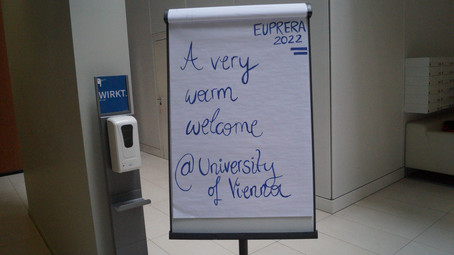 EUPRERA
2022
A very
warm
welcome
@University
of Vienna
WIRKT.